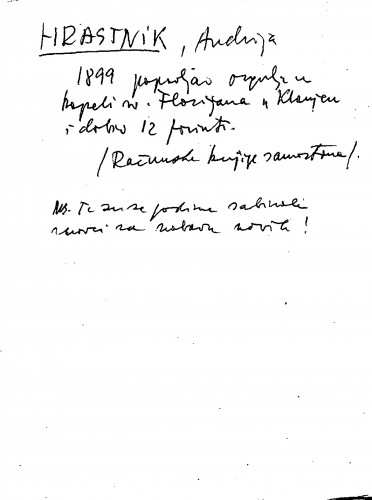 HRASTNIK, Andrija
1899 popravljao orgulje u
kapeli sv. Florijana u Klanjcu
i dobio 12 forinti.
/Računske knjige samostana/.
NB. Te su se godine sabirali
novci za nabavu novih!